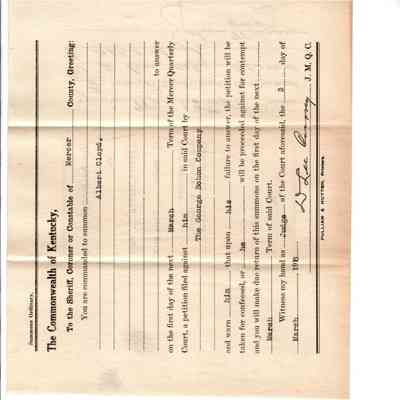 Summons Ordinary.
The Commonwealth of Kentucky,
To the Sheriff, Coroner or Constable of Mercer County, Greeting:
You are commanded to summon
Albert Cloyd,
to answer
on the first day of the next March Term of the Mercer Quarterly
Court, a petition filed against him in said Court by
The George Bohon Company
and warn him that upon his failure to answer, the petition will be
taken for confessed, or he will be proceeded against for contempt
and you will make due return of this summons on the first day of the next
March Term of said Court.
Witness my hand as Judge of the Court aforesaid, the 3 day of
March 191
J. M. Q. C.